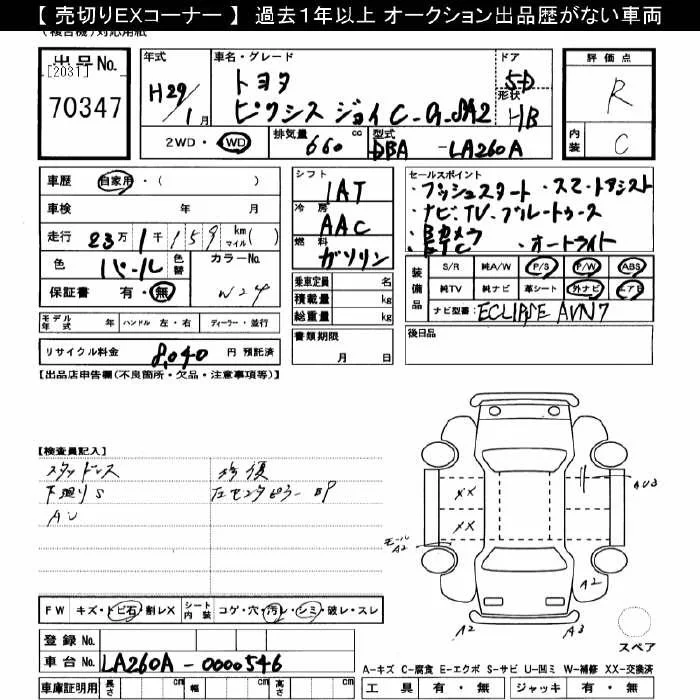 【 売切りEXコーナー 】 過去1年以上 オークション出品歴がない車両
(複合機)対応用紙
出品No.
[2031]
70347
年式
H29/1月
車名・グレード
トヨタ
ピクシス ジョイ C-G_SA2
ドア
5D
形状
HB
2WD・4WD
排気量
660 cc
型式
DBA-LA260A
評価点
R
内装
C
車歴 自家用・( )
車検 年 月
走行 23万1千159 km マイル( )
色 パール
色替
カラーNo.
W24
保証書 有・無
モデル年式 年 ハンドル 左・右 ディーラー・並行
リサイクル料金 8,040 円 預託済
シフト
1AT
冷房
AAC
燃料
ガソリン
乗車定員 名
積載量 kg
総重量 kg
書類期限
月 日
セールスポイント
・プッシュスタート ・スマートアシスト
・ナビ、TV、ブルートゥース
・Bカメラ
・ETC ・オートライト
装備品
S/R 純A/W P/S P/W ABS
純TV 純ナビ 革シート 外ナビ エアB
ナビ型番: ECLIPSE AVN7
後日品
【出品店申告欄(不良箇所・欠品・注意事項等)】
【検査員記入】
スタッドレス 修復
下廻りS 左センタピラーBP
AU
XX
XX
AU3
モール
A2
A2
A2
A3
スペア
FW キズ・トビ石・割レX シート内装 コゲ・穴・汚レ・シミ・破レ・スレ
登録No.
車台No. LA260A-0000546
車庫証明用 長さ cm 幅 cm 高さ cm
A-キズ C-腐食 E-エクボ S-サビ U-凹ミ W-補修 XX-交換済
工具 有・無 ジャッキ 有・無